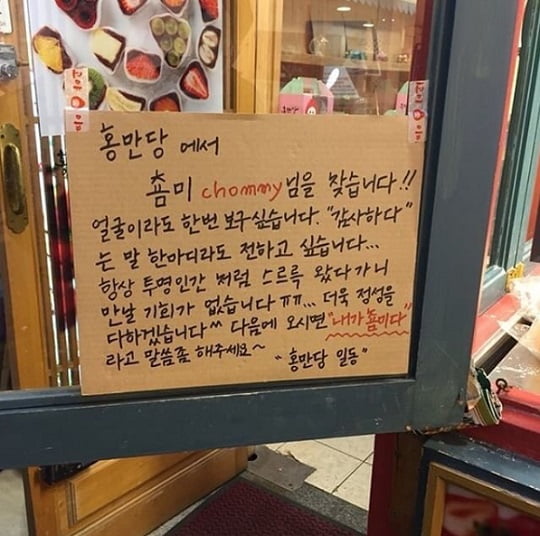 홍만당 에서
촘미 chommy님을 찾습니다!!
얼굴이라도 한번 보구싶습니다. "감사하다"
는 말 한마디라도 전하고 싶습니다...
항상 투명인간 처럼 스르륵 왔다가니
만날 기회가 없습니다 ㅠㅠ... 더욱 정성을
다하겠습니다^^ 다음에 오시면 "내가 촘미다"
라고 말씀좀 해주세요~ "홍만당 일동"